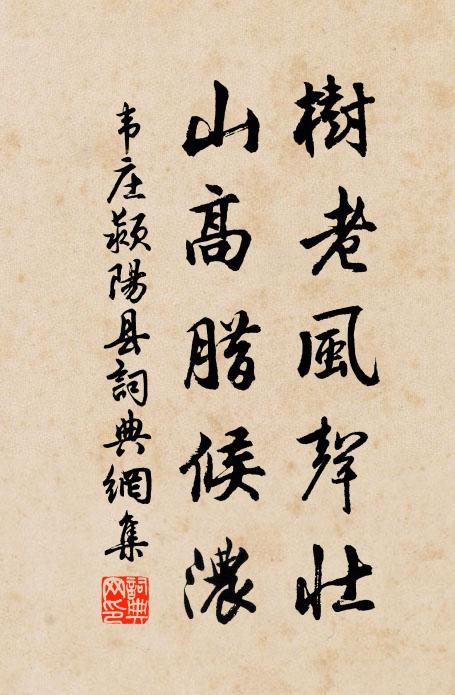 樹老風聲壯
山高腊候濃
韦庄颍陽县詞典網集
詞典网印